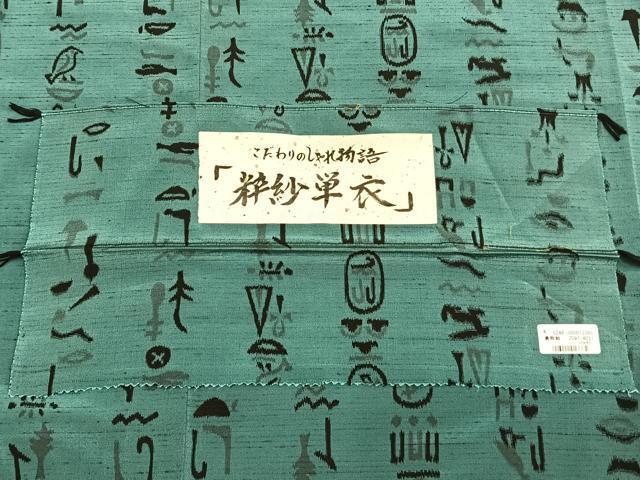 こだわりのしゃれ物語
「粋紗単衣」